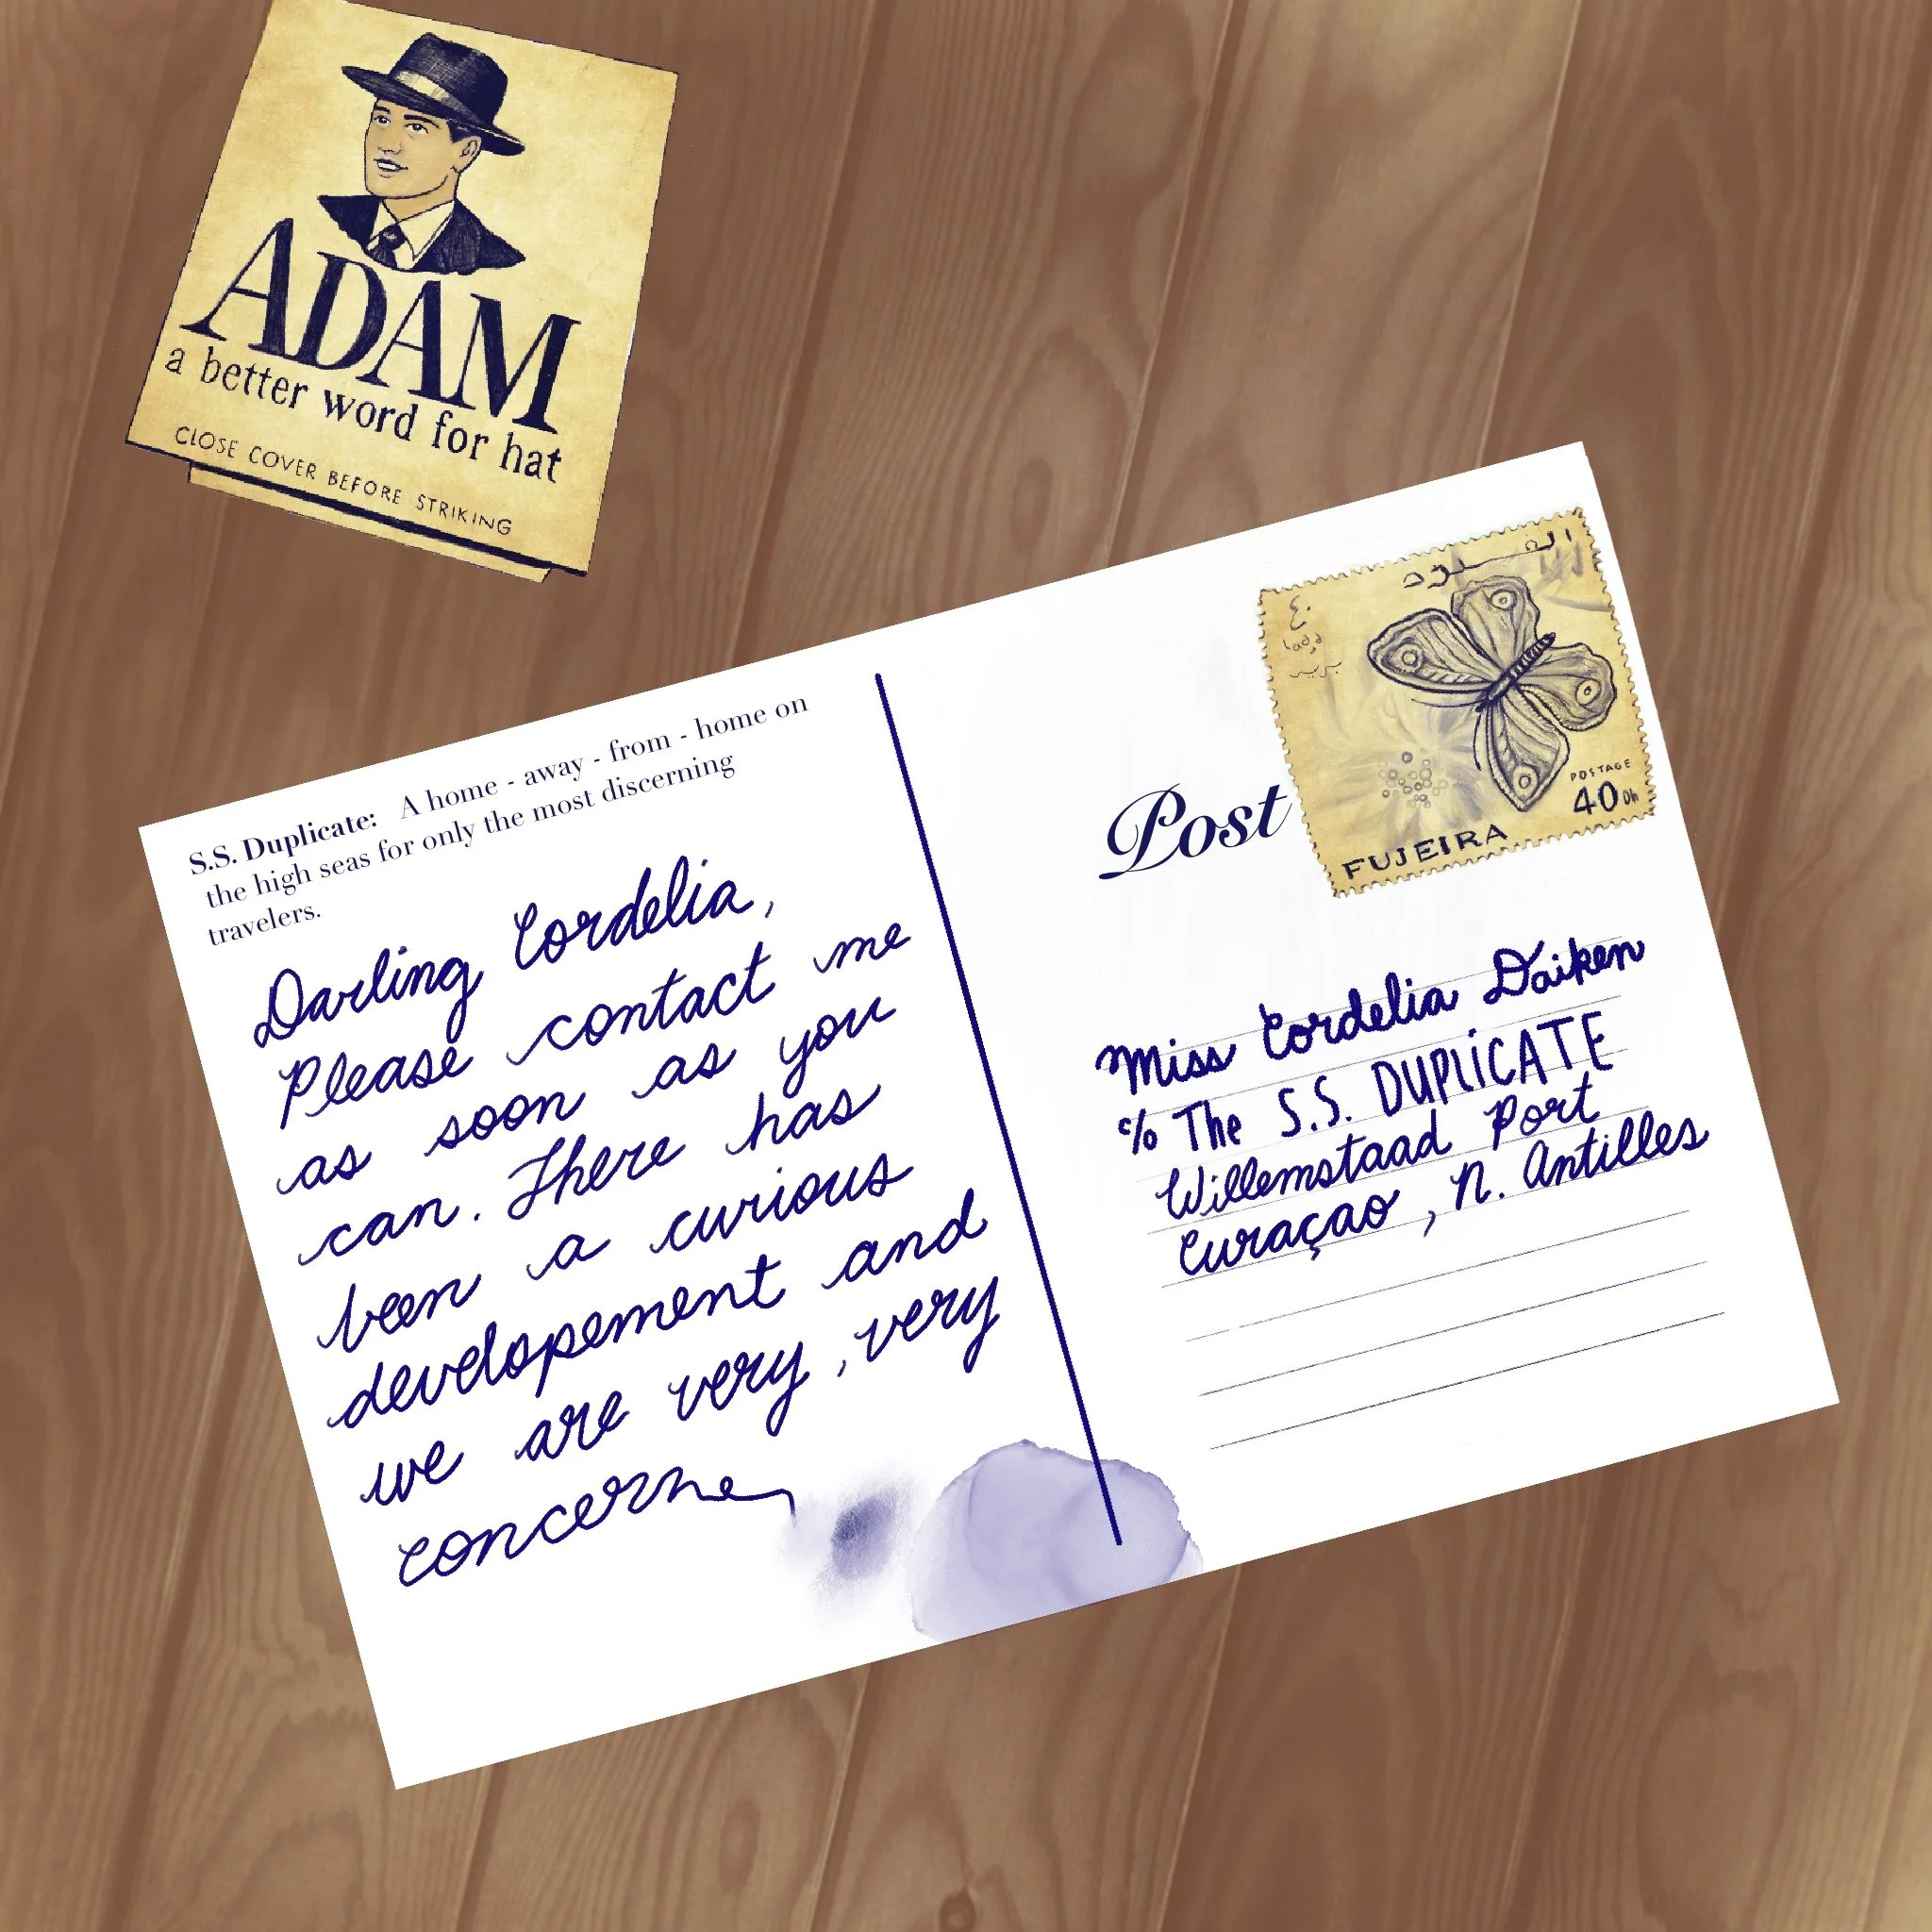 ADAM
a better word for hat
CLOSE COVER BEFORE STRIKING
S.S. Duplicate: A home - away - from - home on
the high seas for only the most discerning
travelers.
Darling Cordelia,
Please contact me
as soon as you
can. There has
been a curious
developement and
we are very, very
concerne
Post
٤٠
بريد
POSTAGE
40 Dh
FUJEIRA
Miss Cordelia Daiken
c/o The S.S. DUPLiCATE
Willemstaad Port
Curaçao, N. Antilles